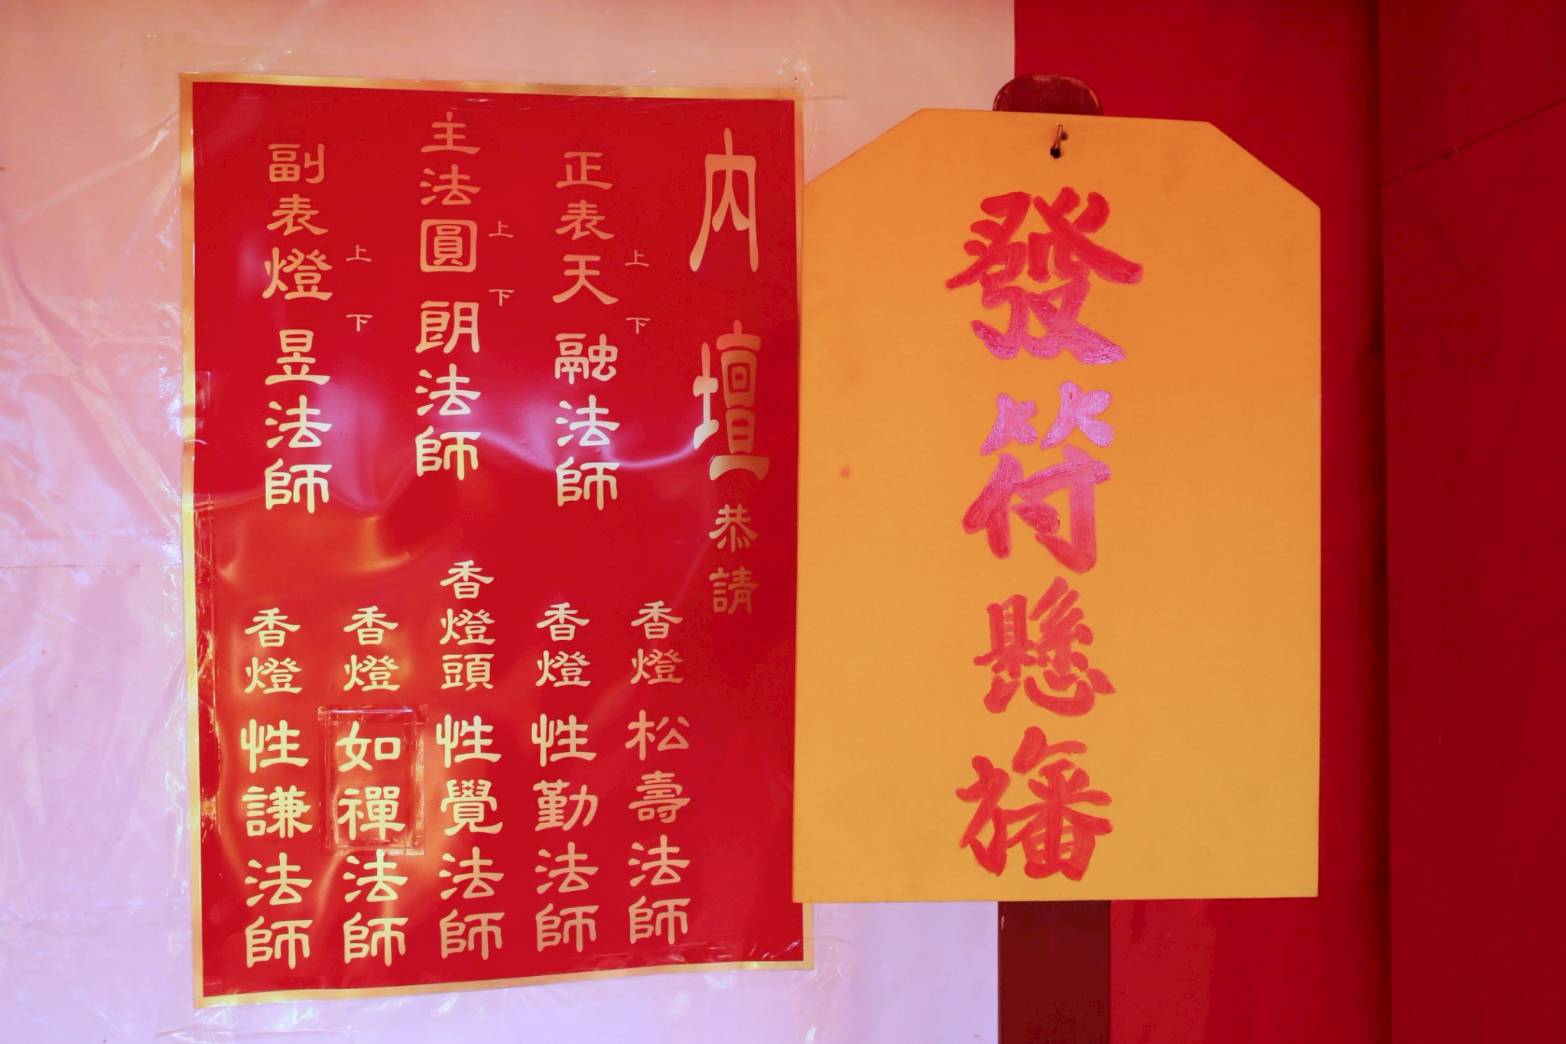 發符懸旛
內壇恭請
正表上天下融法師
主法上圓下朗法師
副表上燈下昱法師
香燈松壽法師
香燈性勤法師
香燈頭性覺法師
香燈如禪法師
香燈性謙法師